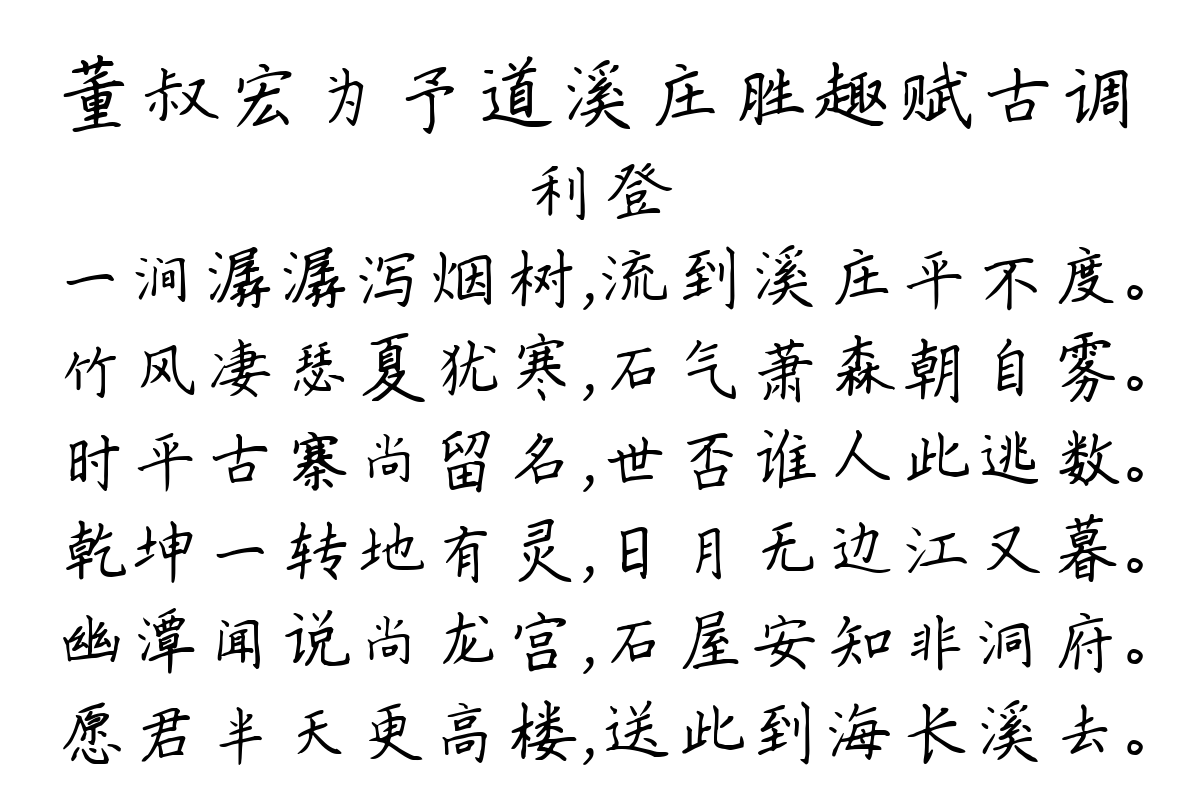 董叔宏为予道溪庄胜趣赋古调
利登
一涧潺潺泻烟树,流到溪庄平不度。
竹风凄瑟夏犹寒,石气萧森朝自雾。
时平古寨尚留名,世否谁人此逃数。
乾坤一转地有灵,日月无边江又暮。
幽潭闻说尚龙宫,石屋安知非洞府。
愿君半天更高楼,送此到海长溪去。